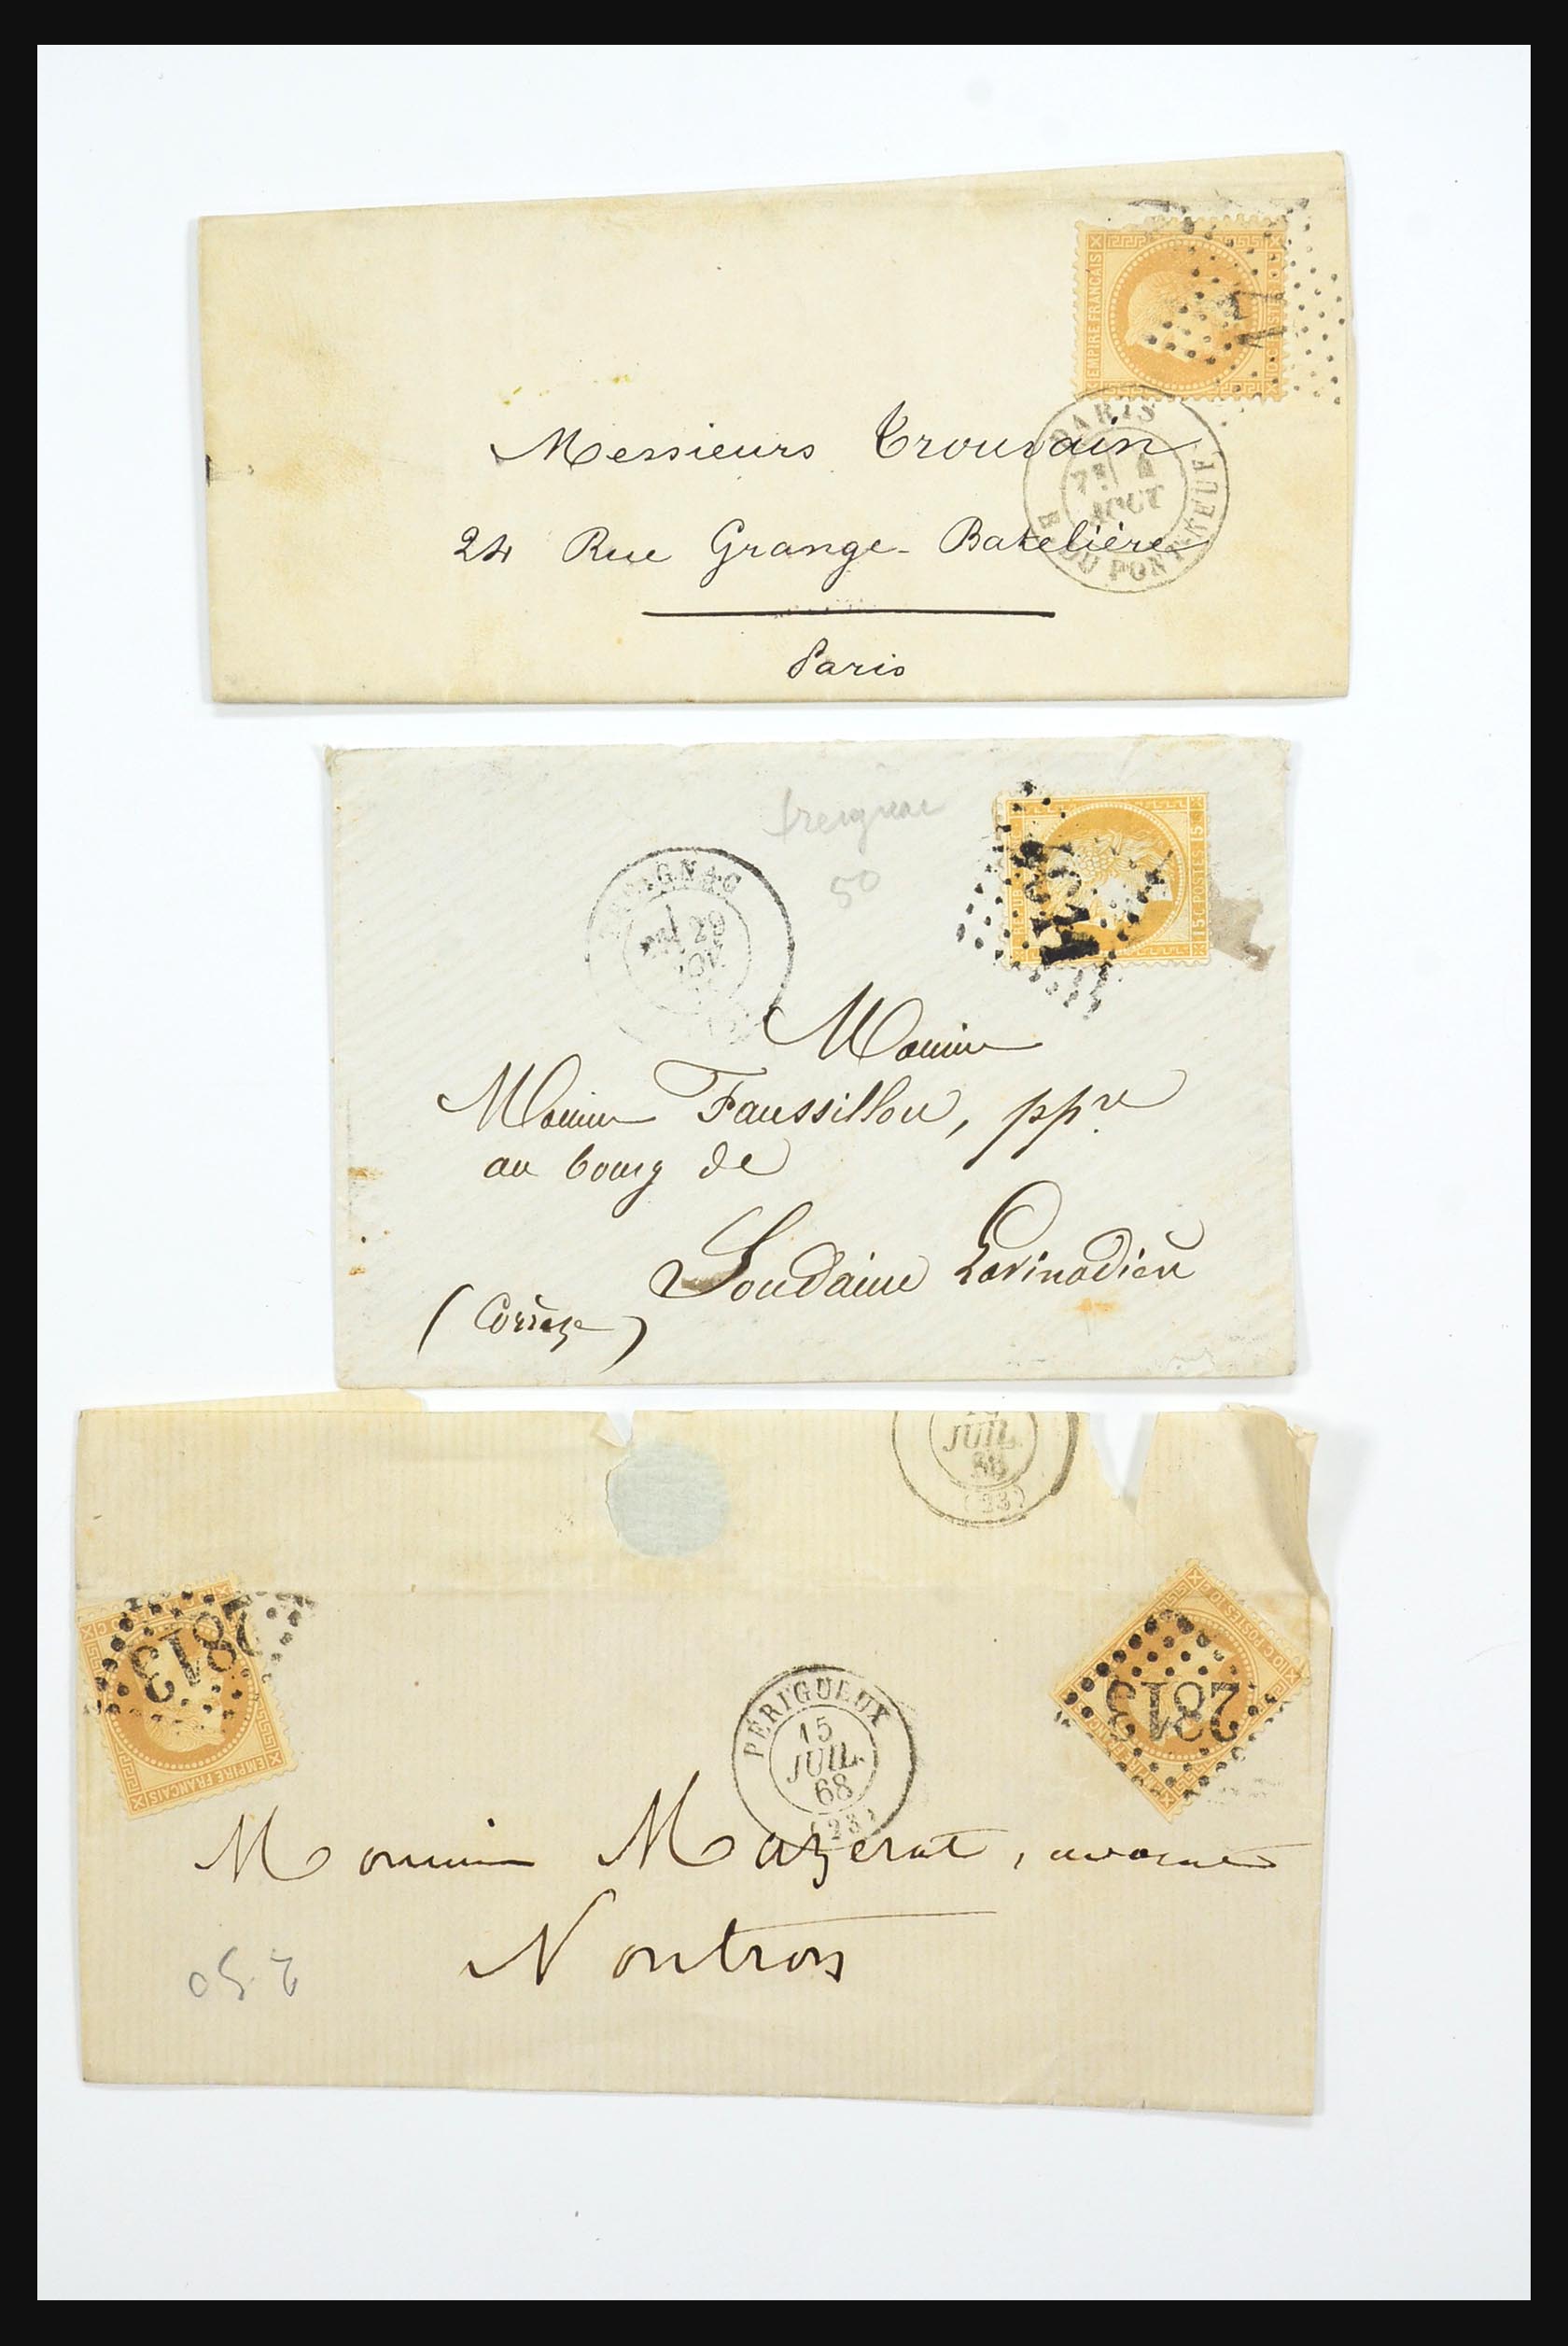 EMPIRE FRANCAIS
PARIS
AOUT
R. DU PONT-NEUF
Messieurs Trouvain
24 Rue Grange-Batelière
Paris
50
29
NOV
15 C POSTES 15 C
Monsieur
Monsieur Faussillou, ppre
au bourg de
Soudaine Lavinadière
(Corrèze)
JUIL.
68
(23)
2813
EMPIRE FRANCAIS
10 C POSTES 10 C
2813
PÉRIGUEUX
15
JUIL.
68
(23)
Monsieur Mazerat, avocat
Nontron
2.50